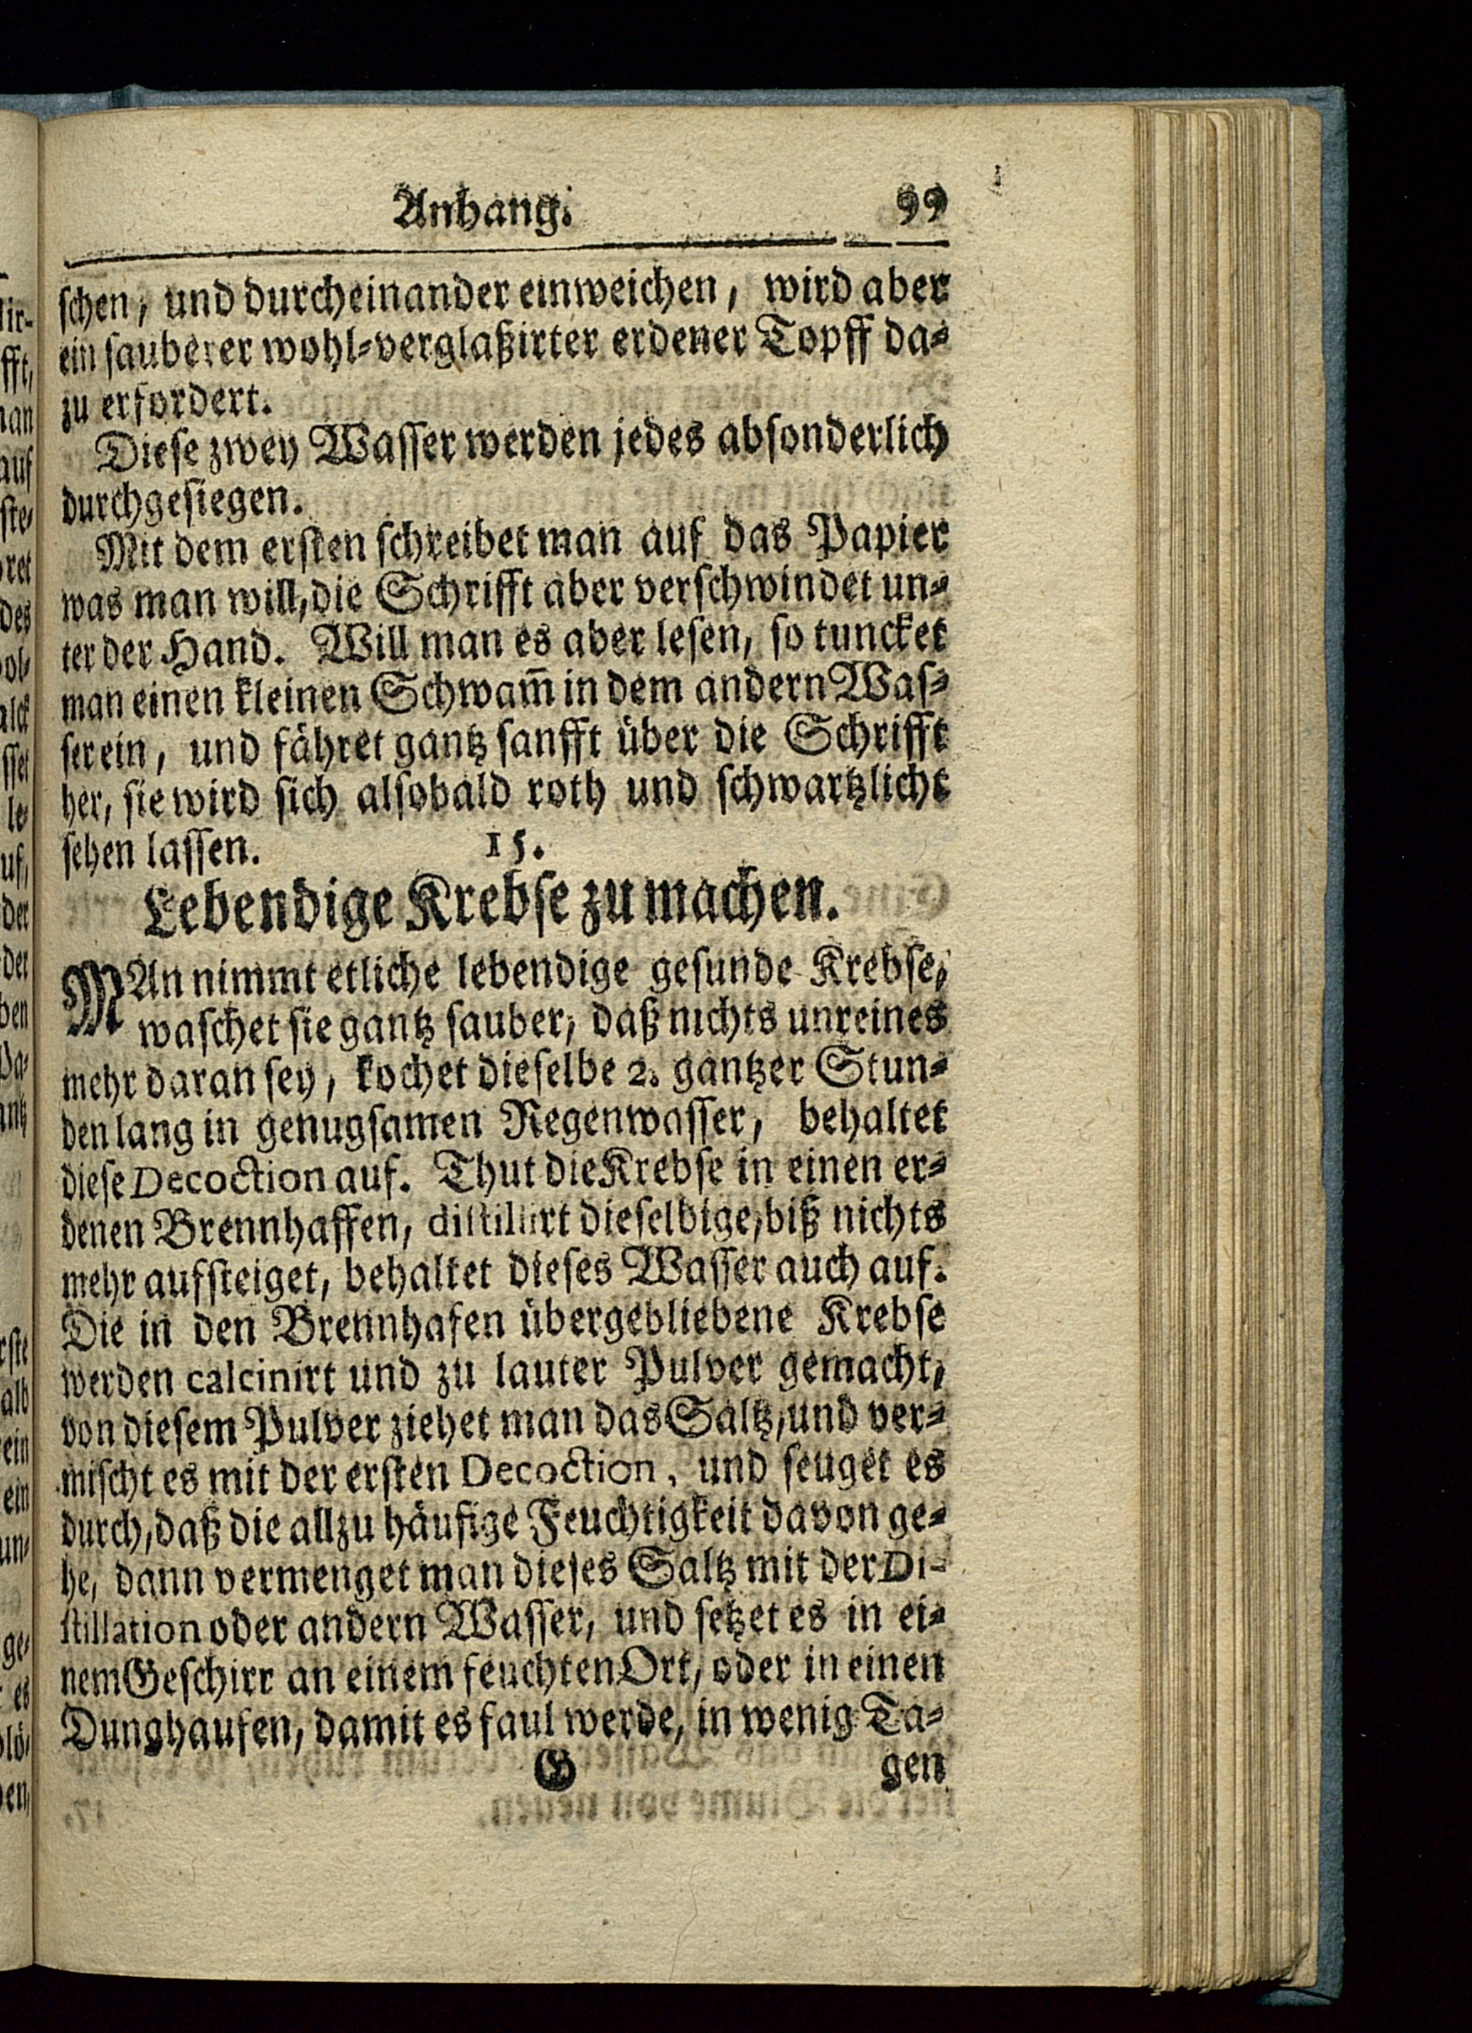 Anhang. 99
schen, und durcheinander einweichen, wird aber
ein sauberer wohl-verglaßirter erdener Topff da-
zu erfordert.
Diese zwey Wasser werden jedes absonderlich
durchgesiegen.
Mit dem ersten schreibet man auf das Papier
was man will, die Schrifft aber verschwindet un-
ter der Hand. Will man es aber lesen, so tuncket
man einen kleinen Schwam̃ in dem andern Was-
ser ein, und fähret gantz sanfft über die Schrifft
her, sie wird sich alsobald roth und schwartzlicht
sehen lassen.
15.
Lebendige Krebse zu machen.
MAn nimmt etliche lebendige gesunde Krebse,
waschet sie gantz sauber, daß nichts unreines
mehr daran sey, kochet dieselbe 2. gantzer Stun-
den lang in genugsamen Regenwasser, behaltet
diese Decoction auf. Thut die Krebse in einen er-
denen Brennhaffen, distillirt dieselbige, biß nichts
mehr aufsteiget, behaltet dieses Wasser auch auf.
Die in den Brennhafen übergebliebene Krebse
werden calcinirt und zu lauter Pulver gemacht,
von diesem Pulver ziehet man das Saltz, und ver-
mischt es mit der ersten Decoction, und seuget es
durch, daß die allzu häufige Feuchtigkeit davon ge-
he, dann vermenget man dieses Saltz mit der Di-
stillation oder andern Wasser, und setzet es in ei-
nem Geschirr an einem feuchten Ort, oder in einen
Dunghaufen, damit es faul werde, in wenig Ta-
G gen